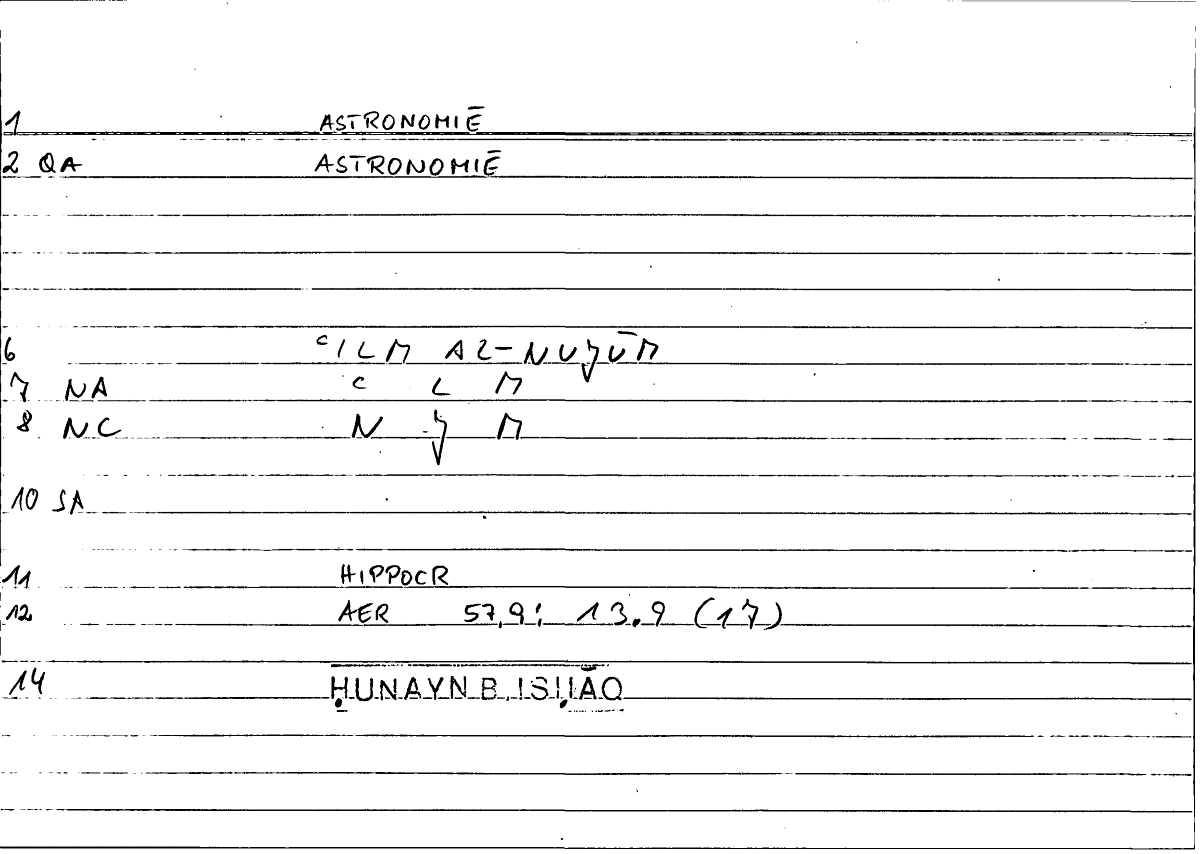 1 ASTRONOMIĒ
2 QA ASTRONOMIĒ
6 ᶜILM AL-NUǧŪM
7 NA ᶜ L M
8 NC N ǧ M
10 SA
11 HIPPOCR
12 AER 57,9: 13.9 (17)
14 ḤUNAYN B. ISḤĀQ